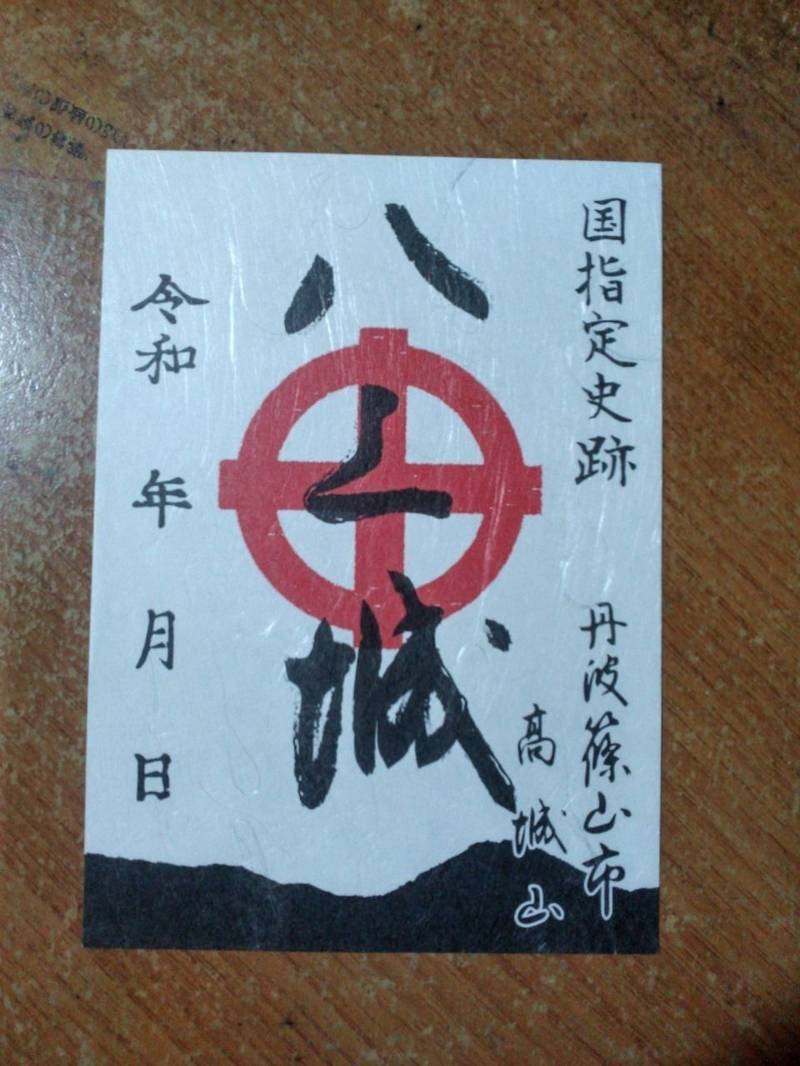 国指定史跡 丹波篠山市
高城山
八上城
令和 年 月 日